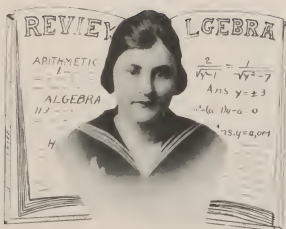 REVIEW ALGEBRA
ARITHMETIC
1
ALGEBRA
113
H
2 / √y-1 = 1 / √y²-7
Ans y = ± 3
-(a-1)y-a=0
ns. y=a, or 1